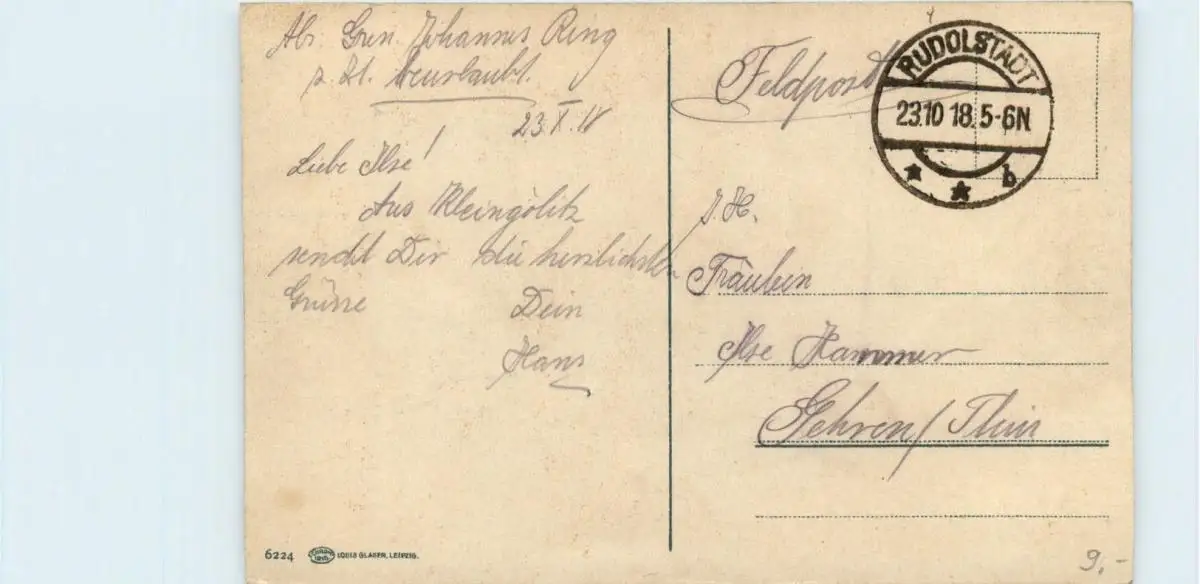 Abs. Gren. Johannes Ring
z. Zt. beurlaubt.
23.X.18
Liebe Ilse!
Aus Kleingölitz
sendet Dir die herzlichsten
Grüsse Dein
Hans
Feldpost
RUDOLSTADT
23.10 18.5-6N
b
I. H.
Fräulein
Ilse Hammer
Gehren/Thür
6224
LOUIS GLASER, LEIPZIG.
9.-